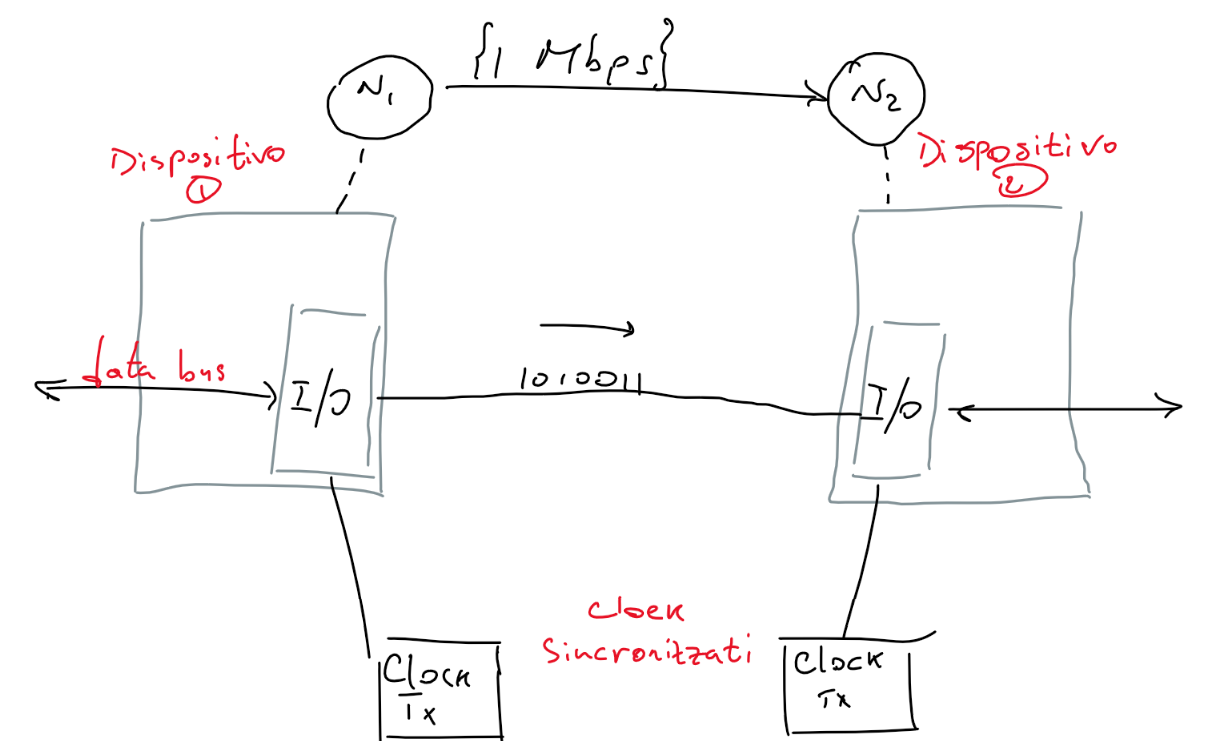 {1 Mbps}
N1
N2
Dispositivo
1
Dispositivo
2
data bus
I/O
1010011
I/O
Clock
Sincronizzati
Clock
Tx
Clock
Tx